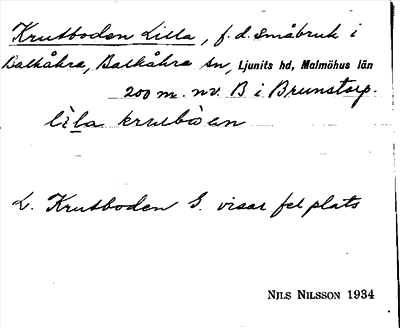 Krutboden Lilla, f.d. småbruk i
Balkåkra, Balkåkra sn, Ljunits hd, Malmöhus län
200 m. nv. B i Brunstorp.
L. Krutboden G. visar fel plats
NILS NILSSON 1934